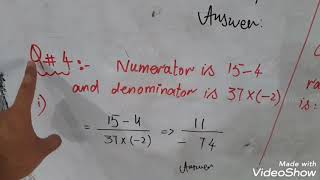 Answer:
Q#4:- Numerator is 15-4
and denominator is 37×(-2)
i)
= 15-4 / 37×(-2) => 11 / - 74
Answer
ra
is:
Made with
VideoShow